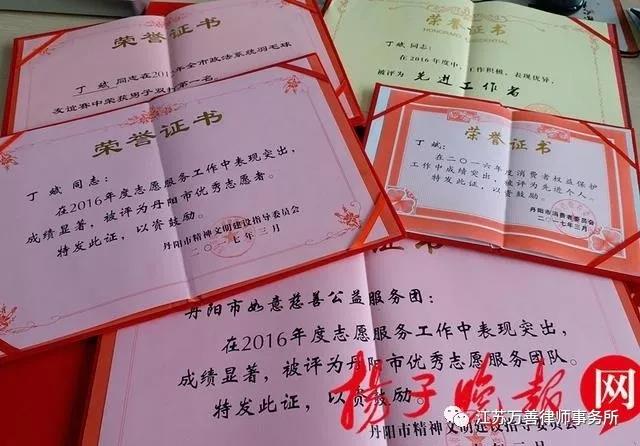 荣誉证书
丁斌同志在201年全市政法系统羽毛球
友谊赛中荣获男子双打第一名。
荣誉证书
丁斌同志:
在2016年度中,工作积极,表现优异,
被评为先进工作者
荣誉证书
丁斌同志:
在2016年度志愿服务工作中表现突出,
成绩显著,被评为丹阳市优秀志愿者。
特发此证,以资鼓励。
丹阳市精神文明建设指导委员会
二〇一七年三月
荣誉证书
丁斌:
在二〇一六年度消费者权益保护
工作中成绩突出,被评为先进个人。
特发此证,以资鼓励。
丹阳市消费者委员会
二〇一七年三月
证书
丹阳市如意慈善公益服务团:
在2016年度志愿服务工作中表现突出,
成绩显著,被评为丹阳市优秀志愿服务团队。
特发此证,以资鼓励。
丹阳市精神文明建设指导委员会
扬子晚报网
江苏万善律师事务所